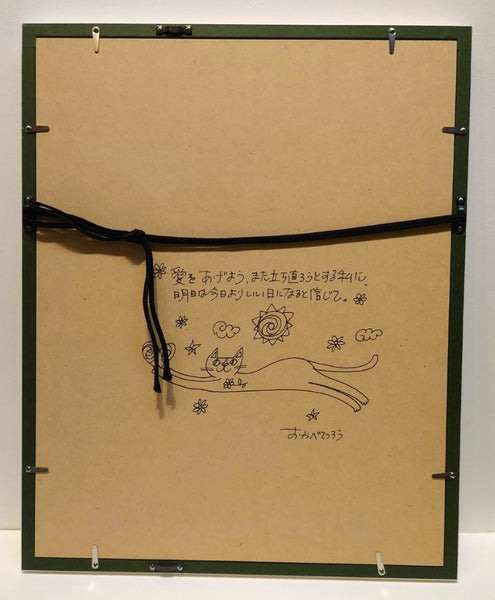 愛をあげよう、また立ち直ろうとする私に、
明日は今日よりいい日になると信じて。
おかべてつろう